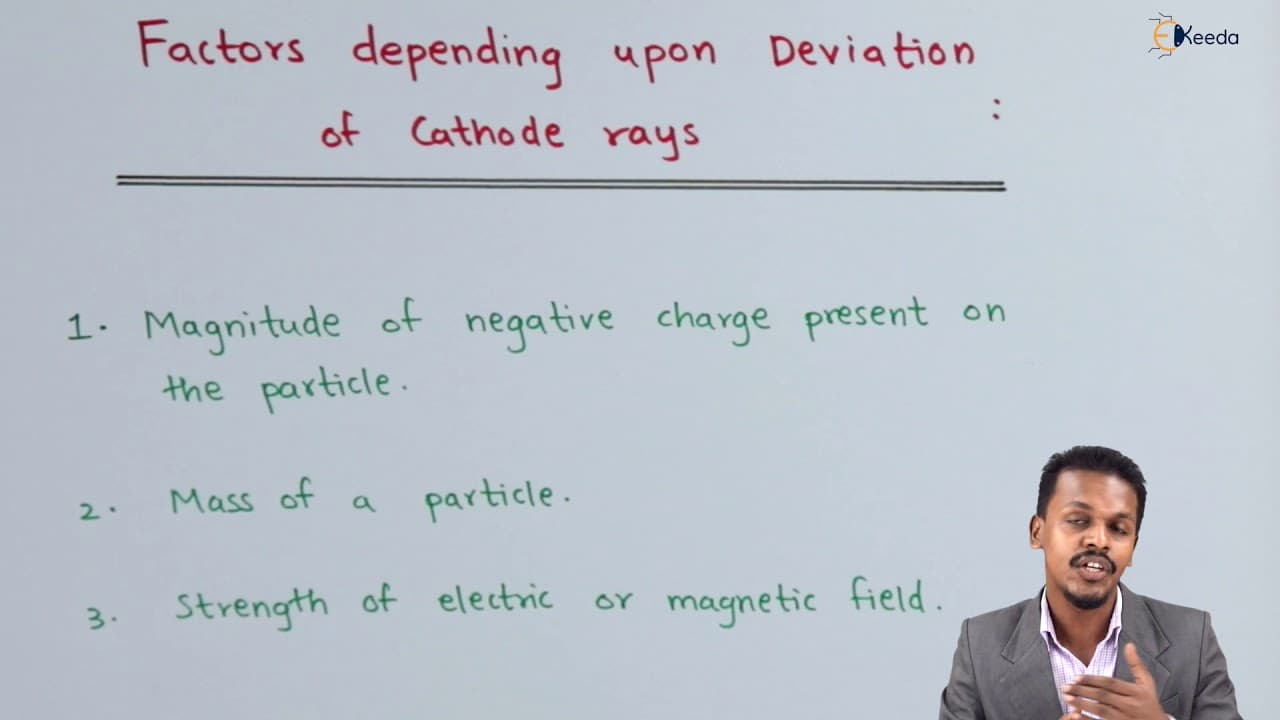 EKeeda
Factors depending upon Deviation
of Cathode rays :
1. Magnitude of negative charge present on
the particle.
2. Mass of a particle.
3. Strength of electric or magnetic field.